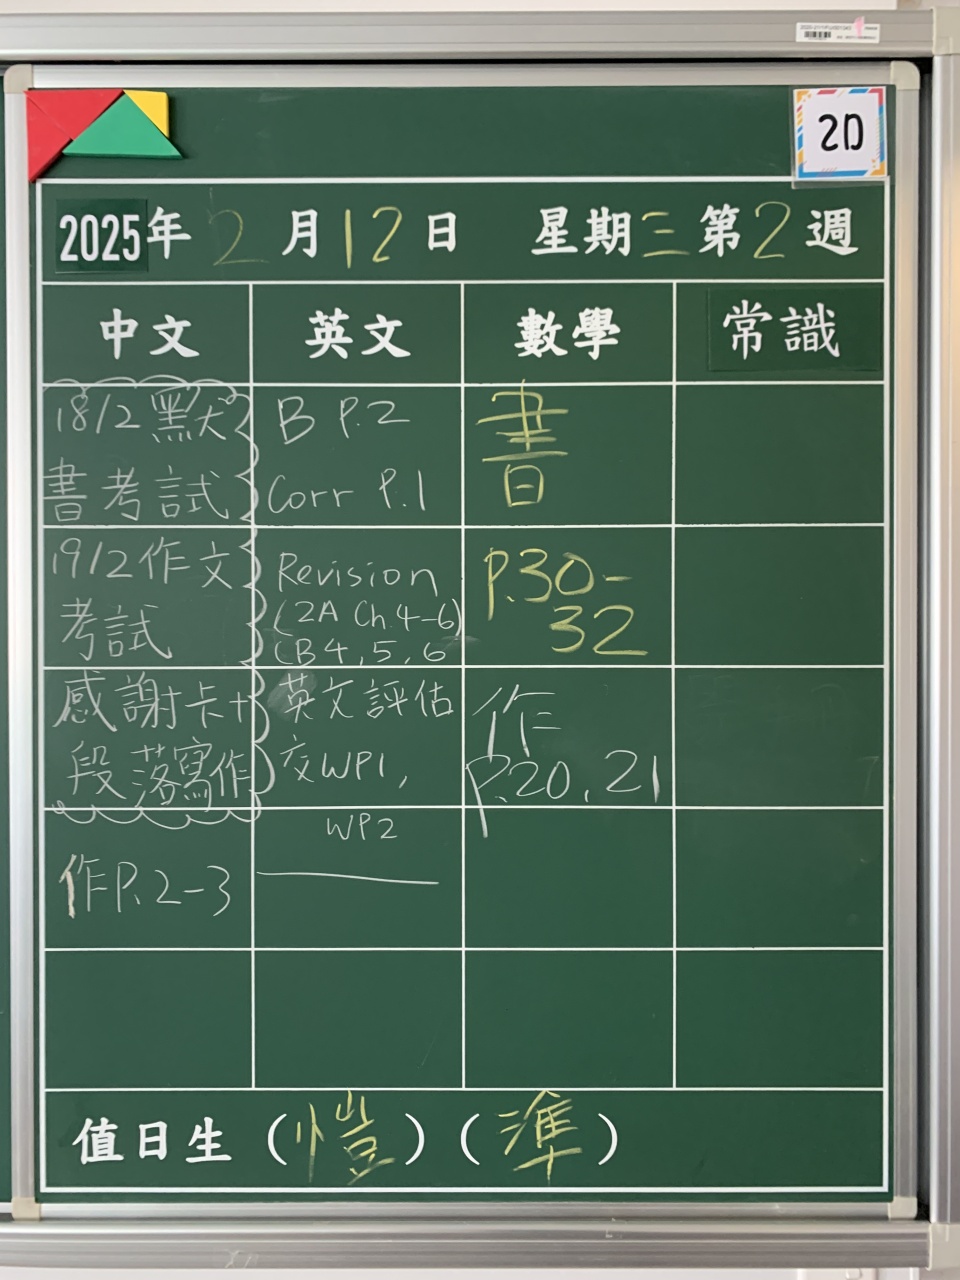 2D
2025年2月12日 星期三第2週
中文 英文 數學 常識
18/2 默
書考試
19/2作文
考試
感謝卡+
段落寫作
作P.2-3
B P.2
Corr P.1
Revision
(2A Ch.4-6)
(B4,5,6
英文評估
交WP1,
WP2
書
P.30-
32
作
P.20,21
值日生(愷)(準)